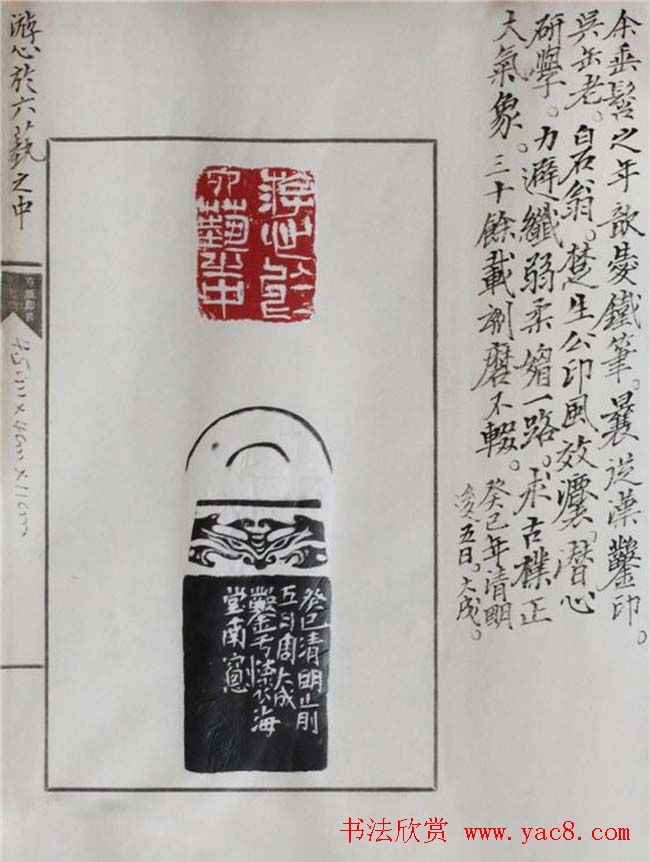 余垂髫之年歆愛鐵筆。曩從漢鑿印。
吳缶老。白石翁。楚生公印風效灋。潛心
研學。力避纖弱柔媚一路。求古樸正
大氣象。三十餘載磨不輟。
癸巳年清明
後五日。大成。
游心於
六藝之中
癸巳清明止前
五日周大成
鑿于懷海
堂南窗
游心於六藝之中
书法欣赏 www.yac8.com